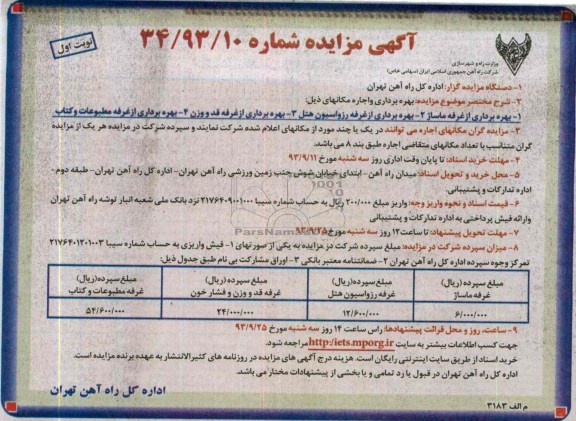 نوبت اول
آگهی مزایده شماره ۳۴/۹۳/۱۰
وزارت راه و شهرسازی
شرکت راه آهن جمهوری اسلامی ایران (سهامی خاص)
۱- دستگاه مزایده گزار: اداره کل راه آهن تهران
۲- شرح مختصر موضوع مزایده: بهره برداری واجاره مکانهای ذیل:
۱- بهره برداری ازغرفه ماساژ ۲- بهره برداری ازغرفه رزواسیون هتل ۳- بهره برداری ازغرفه قد و وزن ۴- بهره برداری ازغرفه مطبوعات وکتاب
۳- مزایده گران مکانهای اجاره می توانند در یک یا چند مورد از مکانهای اعلام شده شرکت نمایند و سپرده شرکت در مزایده هر یک از مزایده
گران متناسب با تعداد مکانهای متقاضی اجاره طبق بند ۸ می باشد.
۴- مهلت خرید اسناد: تا پایان وقت اداری روز سه شنبه مورخ ۹۳/۹/۱۱
۵- محل خرید و تحویل اسناد: میدان راه آهن- ابتدای خیابان شوش جنب زمین ورزشی راه آهن تهران- اداره کل راه آهن تهران- طبقه دوم-
اداره تدارکات و پشتیبانی.
۶- قیمت اسناد و نحوه واریز وجه: واریز مبلغ ۲۰۰/۰۰۰ ریال به حساب شماره سیبا ۲۱۷۶۴۰۹۰۰۱۰۰۰ نزد بانک ملی شعبه انبار توشه راه آهن تهران
وارائه فیش پرداختی به اداره تدارکات و پشتیبانی
۷- مهلت تحویل پیشنهاد: تا ساعت ۱۲ روز سه شنبه مورخ ۹۳/۹/۲۵
۸- میزان سپرده شرکت در مزایده: مبلغ سپرده شرکت در مزایده به یکی از صورتهای ۱- فیش واریزی به حساب شماره سیبا ۲۱۷۶۴۰۱۲۰۱۰۰۳
تمرکز وجوه سپرده اداره کل راه آهن تهران ۲- ضمانتنامه معتبر بانکی ۳- اوراق مشارکت بی نام طبق جدول ذیل:
مبلغ سپرده (ریال) غرفه ماساژ
مبلغ سپرده (ریال) غرفه رزواسیون هتل
مبلغ سپرده (ریال) غرفه قد و وزن و فشار خون
مبلغ سپرده (ریال) غرفه مطبوعات و کتاب
۶/۰۰۰/۰۰۰ ۱۲/۶۰۰/۰۰۰ ۲۴/۰۰۰/۰۰۰ ۵۴/۶۰۰/۰۰۰
۹- ساعت، روز و محل قرائت پیشنهادها: راس ساعت ۱۴ روز سه شنبه مورخ ۹۳/۹/۲۵
جهت کسب اطلاعات بیشتر به سایت http://iets.mporg.ir مراجعه شود.
خرید اسناد از طریق سایت اینترنتی رایگان است. هزینه درج آگهی های مزایده در روزنامه های کثیرالانتشار به عهده برنده مزایده است.
اداره کل راه آهن تهران در قبول یا رد تمامی و یا بخشی از پیشنهادات مختار می باشد.
اداره کل راه آهن تهران
م الف ۳۱۸۳